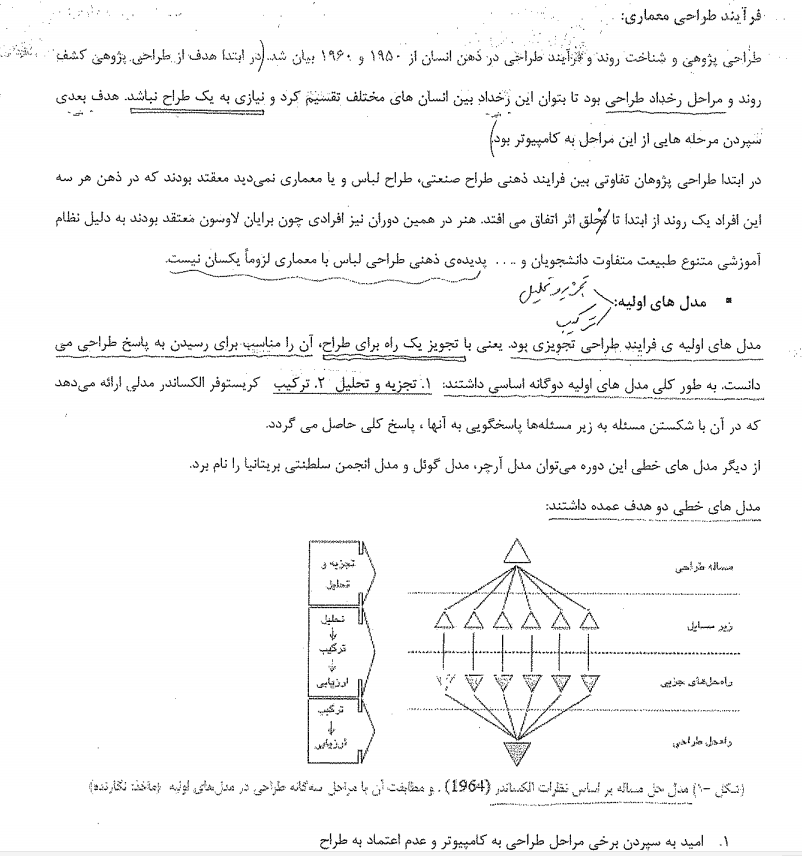 فرآیند طراحی معماری:
طراحی پژوهی و شناخت روند و فرآیند طراحی در ذهن انسان از ۱۹۵۰ و ۱۹۶۰ بیان شد. (در ابتدا هدف از طراحی پژوهی کشف
روند و مراحل رخداد طراحی بود تا بتوان این رخداد بین انسان های مختلف تقسیم کرد و نیازی به یک طراح نباشد. هدف بعدی
سپردن مرحله هایی از این مراحل به کامپیوتر بود.)
در ابتدا طراحی پژوهان تفاوتی بین فرایند ذهنی طراح صنعتی، طراح لباس و یا معماری نمی‌دید معقتد بودند که در ذهن هر سه
این افراد یک روند از ابتدا تا خلق اثر اتفاق می افتد. هنر در همین دوران نیز افرادی چون برایان لاوسون معتقد بودند به دلیل نظام
آموزشی متنوع طبیعت متفاوت دانشجویان و .... پدیده‌ی ذهنی طراحی لباس با معماری لزوماً یکسان نیست.
تجزیه و تحلیل
▪ مدل های اولیه:
ترکیب
مدل های اولیه ی فرایند طراحی تجویزی بود. یعنی با تجویز یک راه برای طراح، آن را مناسب برای رسیدن به پاسخ طراحی می
دانست. به طور کلی مدل های اولیه دوگانه اساسی داشتند: ۱. تجزیه و تحلیل ۲. ترکیب کریستوفر الکساندر مدلی ارائه می‌دهد
که در آن با شکستن مسئله به زیر مسئله‌ها پاسخگویی به آنها ، پاسخ کلی حاصل می گردد.
از دیگر مدل های خطی این دوره می‌توان مدل آرچر، مدل گوئل و مدل انجمن سلطنتی بریتانیا را نام برد.
مدل های خطی دو هدف عمده داشتند:
مساله طراحی
زیر مسایل
راه‌حل‌های جزیی
راه‌حل طراحی
تجزیه و
تحلیل
تحلیل
ترکیب
ارزیابی
ترکیب
ارزیابی
(شکل -۱) مدل حل مساله بر اساس نظرات الکساندر (1964) . و مطابقت آن با مراحل سه‌گانه طراحی در مدل‌های اولیه (ماخذ: نگارنده)
۱. امید به سپردن برخی مراحل طراحی به کامپیوتر و عدم اعتماد به طراح